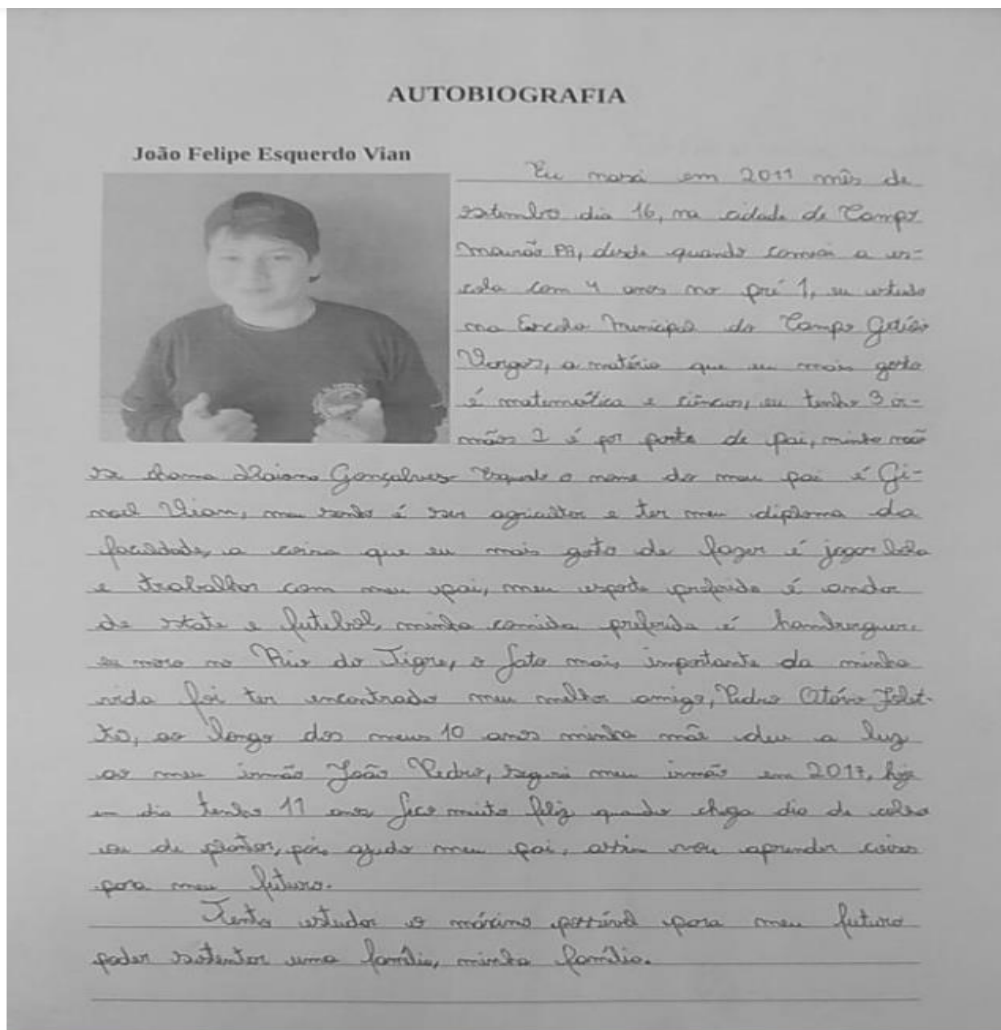 AUTOBIOGRAFIA
João Felipe Esquerdo Vian
Eu nasci em 2011 mês de
setembro dia 16, na cidade de Campo
Mourão PR, desde quando comecei a es-
cola com 4 anos no pré 1, eu estudo
na Escola Municipal do Campo Getúlio
Vargas, a matéria que eu mais gosto
é matemática e ciências, eu tenho 3 ir-
mãos 2 é por parte de pai, minha mãe
se chama Gonçalves o nome do meu pai é Gi-
Vian, meu sonho é ser agricultor e ter meu diploma da
faculdade, a coisa que eu mais gosto de fazer é jogar bola
e trabalhar com meu pai, meu esporte preferido é andar
de skate e futebol, minha comida preferida é hamburguer.
eu moro no Rio do Tigre, o fato mais importante da minha
vida foi ter encontrado meu melhor amigo, Pedro Otávio
ao longo dos meus 10 anos minha mãe deu a luz
ao meu irmão João Pedro, meu irmão em 2017, hoje
em dia tenho 11 anos fico muito feliz quando chega dia de
ou de plantar, pois ajudo meu pai, assim vou aprender coisas
para meu futuro.
Tento estudar o máximo possível para meu futuro
poder sustentar uma família, minha família.